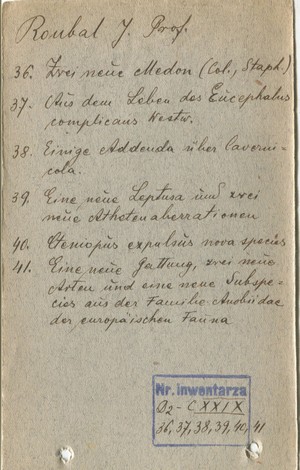 Roubal J. Prof.
36. Zwei neue Medon (Col., Staph.)
37. Aus dem Leben des Eucephalus
complicans Westw.
38. Einige Addenda über Caverni-
cola.
39. Eine neue Leptusa und zwei
neue Athetenaberrationen
40. Steniopus expalsus nova species
41. Eine neue Gattung, zwei neue
Arten und eine neue Subspe-
cies aus der Familie Anobiidae
der europäischen Fauna
Nr. inwentarza
D2-CXXIX
36, 37, 38, 39, 40, 41